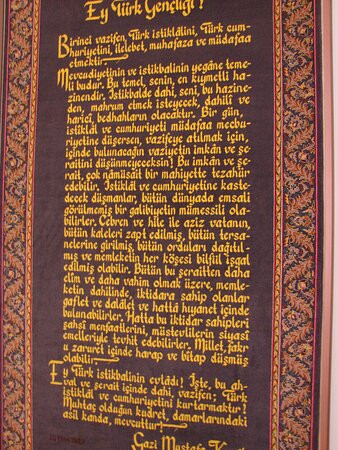 Ey Türk Gençliği!
Birinci vazifen, Türk istiklâlini, Türk cum-
huriyetini, ilelebet, muhafaza ve müdafaa
etmektir.
Mevcudiyetinin ve istikbalinin yegâne teme-
li budur. Bu temel, senin, en kıymetli ha-
zinendir. İstikbalde dahi, seni, bu hazine-
den, mahrum etmek isteyecek, dahilî ve
haricî, bedhahların olacaktır. Bir gün,
istiklâl ve cumhuriyeti müdafaa mecbu-
riyetine düşersen, vazifeye atılmak için,
içinde bulunacağın vaziyetin imkân ve şe-
raitini düşünmeyeceksin! Bu imkân ve şe-
rait, çok nâmüsait bir mahiyette tezahür
edebilir. İstiklâl ve cumhuriyetine kaste-
decek düşmanlar, bütün dünyada emsali
görülmemiş bir galibiyetin mümessili ola-
bilirler. Cebren ve hile ile aziz vatanın,
bütün kaleleri zapt edilmiş, bütün tersa-
nelerine girilmiş, bütün orduları dağıtıl-
mış ve memleketin her köşesi bilfiil işgal
edilmiş olabilir. Bütün bu şeraitten daha
elîm ve daha vahim olmak üzere, memle-
ketin dahilinde, iktidara sahip olanlar
gaflet ve dalâlet ve hattâ hıyanet içinde
bulunabilirler. Hatta bu iktidar sahipleri
şahsî menfaatlerini, müstevlilerin siyasî
emelleriyle tevhit edebilirler. Millet, fakr
u zaruret içinde harap ve bîtap düşmüş
olabilir.
Ey Türk istikbalinin evlâdı! İşte, bu ah-
val ve şerait içinde dahi, vazifen; Türk
istiklâl ve cumhuriyetini kurtarmaktır!
Muhtaç olduğun kudret, damarlarındaki
asil kanda, mevcuttur!
Gazi Mustafa